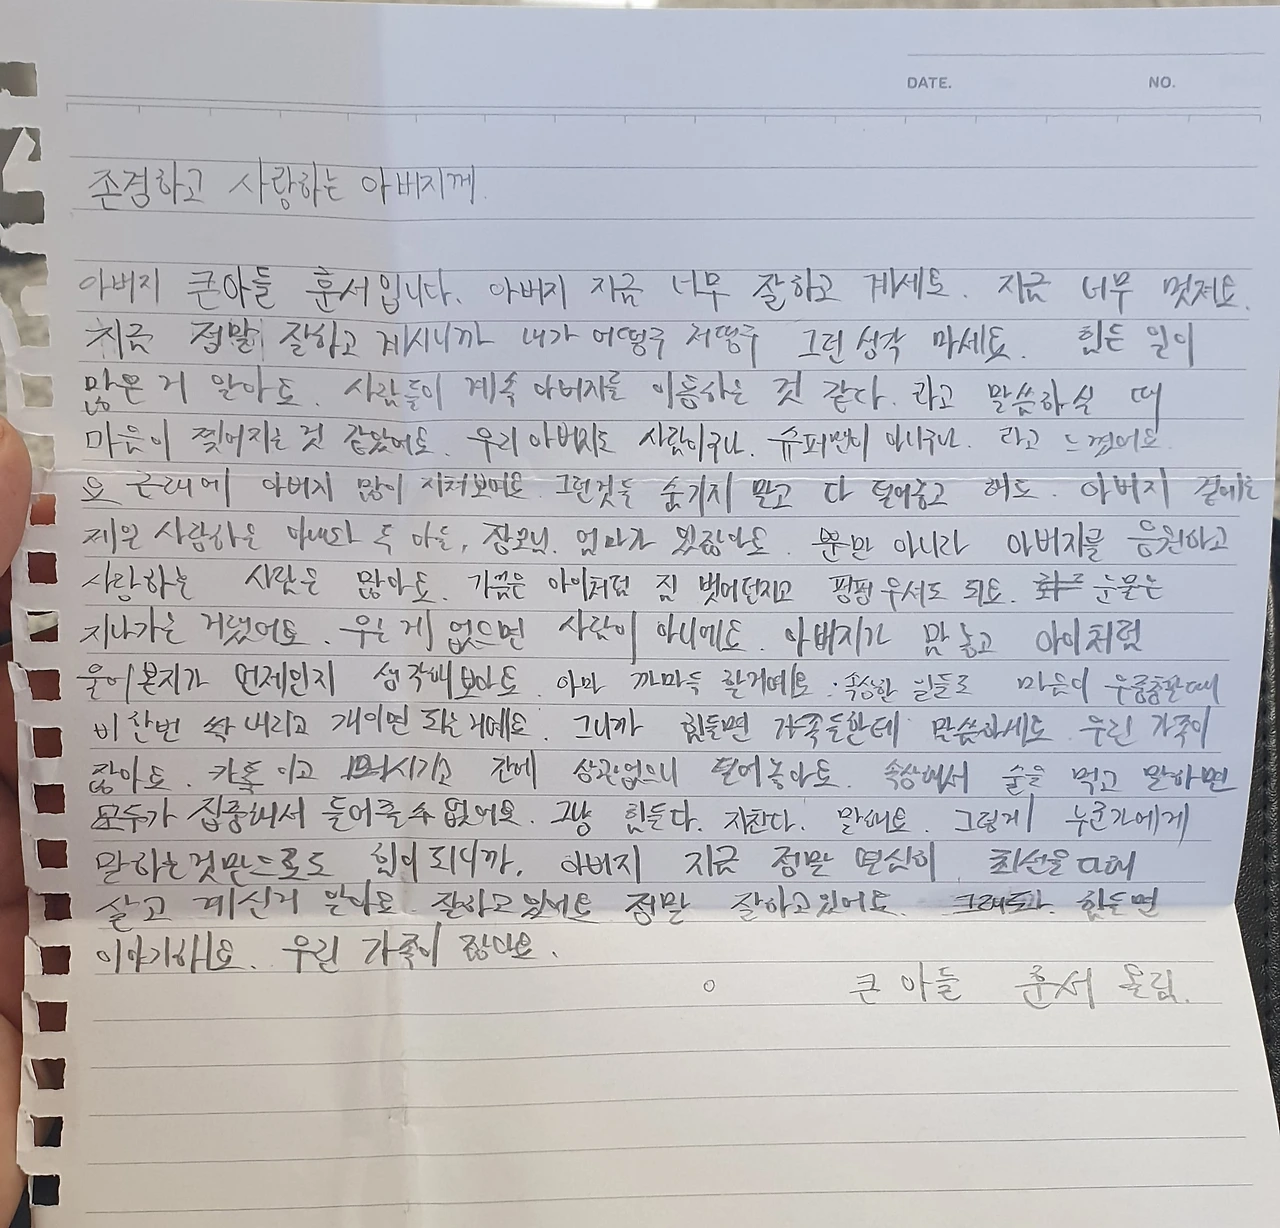 DATE. NO.
존경하고 사랑하는 아버지께.
아버지 큰아들 훈서입니다. 아버지 지금 너무 잘하고 계세요. 지금 너무 멋져요.
지금 정말 잘하고 계시니까 내가 어떻구 저떻구 그런 생각 마세요. 힘든 일이
많은 거 알아요. 사람들이 계속 아버지를 이용하는 것 같다. 라고 말씀하실 때
마음이 찢어지는 것 같았어요. 우리 아버지도 사람이구나. 슈퍼맨이 아니구나. 라고 느꼈어요.
요 근래에 아버지 많이 지쳐보여요. 그런것들 숨기지 말고 다 털어놓고 해도. 아버지 곁에는
제일 사랑하는 아내와 두 아들, 장모님, 엄마가 있잖아요. 뿐만 아니라 아버지를 응원하고
사랑하는 사람은 많아요. 가끔은 아이처럼 짐 벗어던지고 펑펑 우셔도 되요. 눈물은
지나가는 거랬어요. 우는 게 없으면 사람이 아니에요. 아버지가 맘 놓고 아이처럼
울어본지가 언제인지 생각해보아요. 아마 까마득 할거에요. 속상한 일들로 마음이 우중충할때
비 한번 싹 내리고 개이면 되는거에요. 그니까 힘들면 가족들한테 말씀하세요. 우린 가족이
잖아요. 카톡 이고 간에 상관없으니 털어놓아요. 속상해서 술을 먹고 말하면
모두가 집중해서 들어줄 수 없어요. 그냥 힘들다. 지친다. 말해요. 그렇게 누군가에게
말하는것만으로도 힘이 되니까. 아버지 지금 정말 열심히 최선을 다해
살고 계신거 알아요. 잘하고있어요 정말 잘하고있어요. 힘들면
이야기해요. 우린 가족이 잖아요.
큰 아들 훈서 올림.